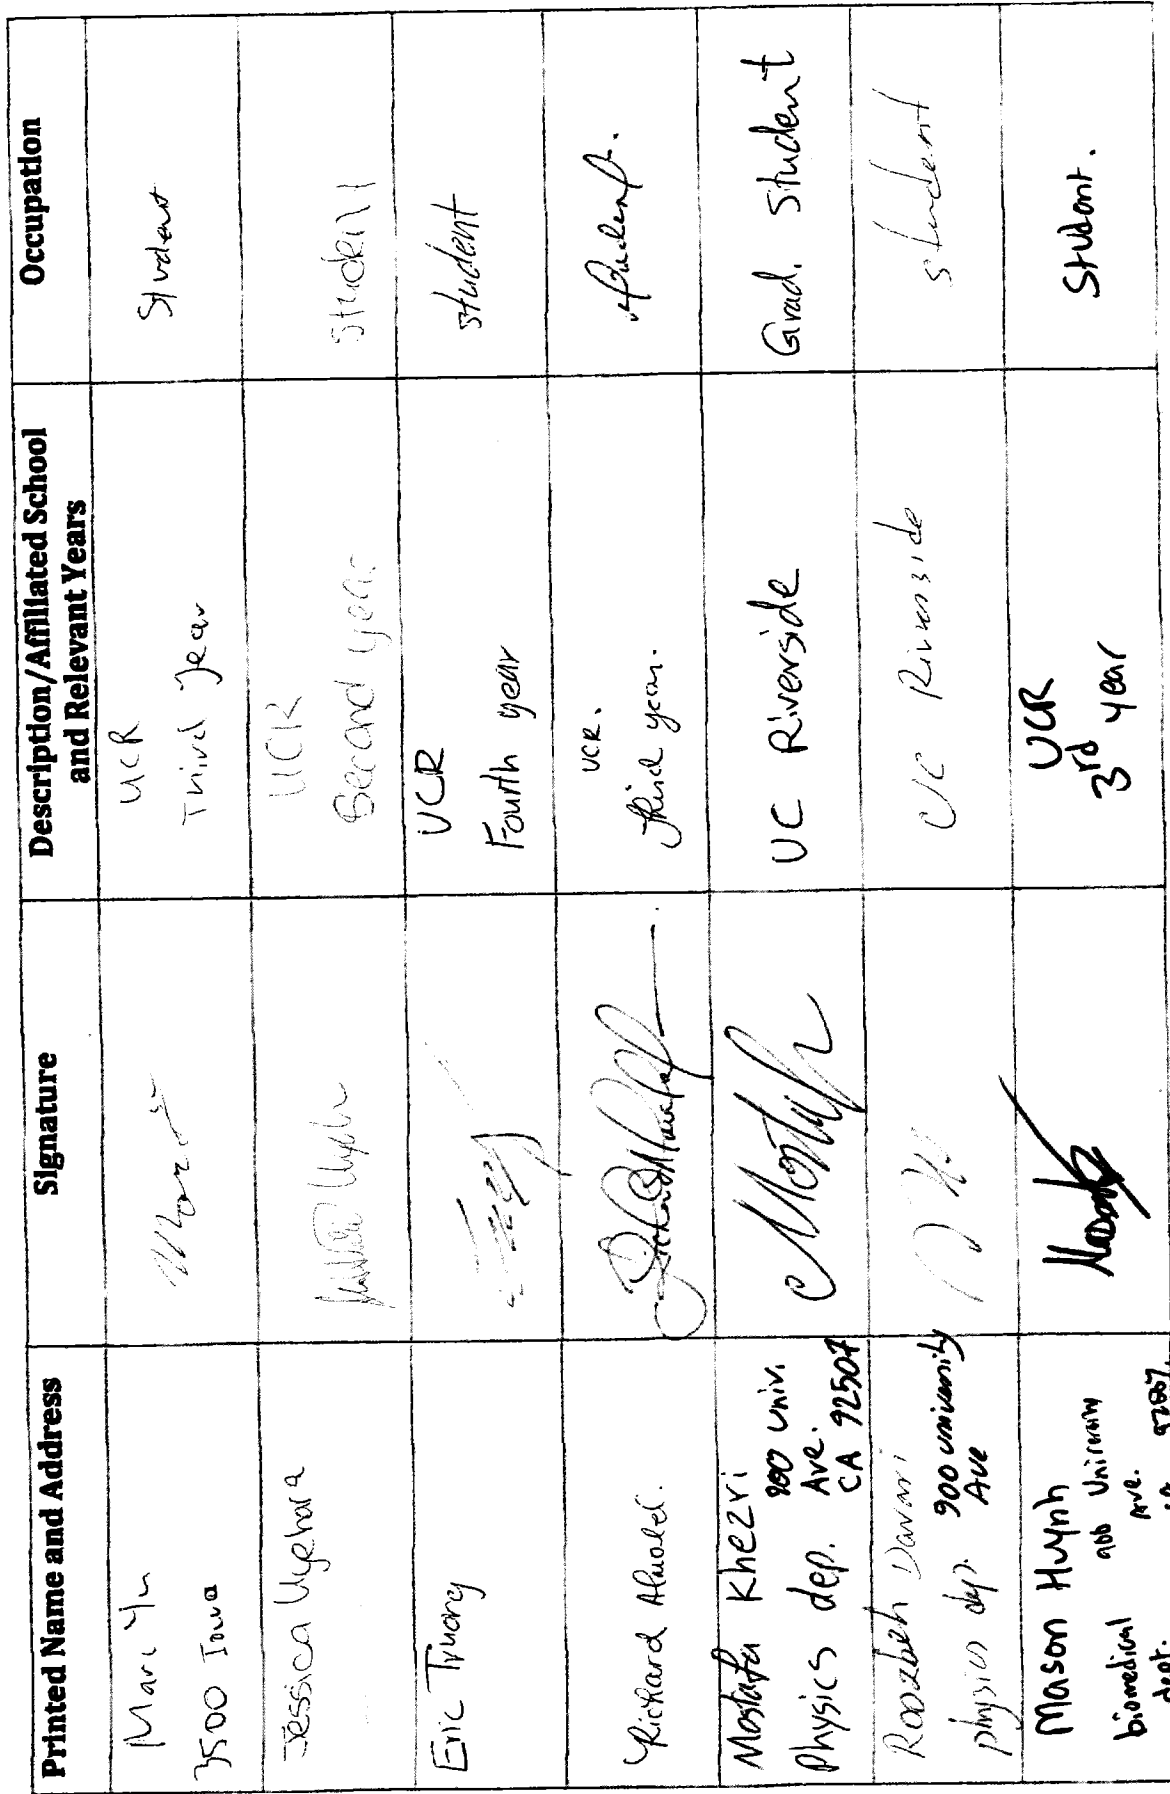 Printed Name and Address
Signature
Description/Affiliated School
and Relevant Years
Occupation
Marc Yu
3500 Iowa
UCR
Third year
Student
Jessica Uyehara
UCR
Second year
Student
Eric Truong
UCR
Fourth year
student
Richard
UCR.
third year.
student.
Mostafa Khezri
Physics dep.
900 Univ.
Ave.
CA 92507
UC Riverside
Grad. Student
Roozbeh Davari
physics dep.
900 university
Ave
UC Riverside
student
Mason Huynh
biomedical
dept.
900 University
Ave.
UCR
3rd year
Student.